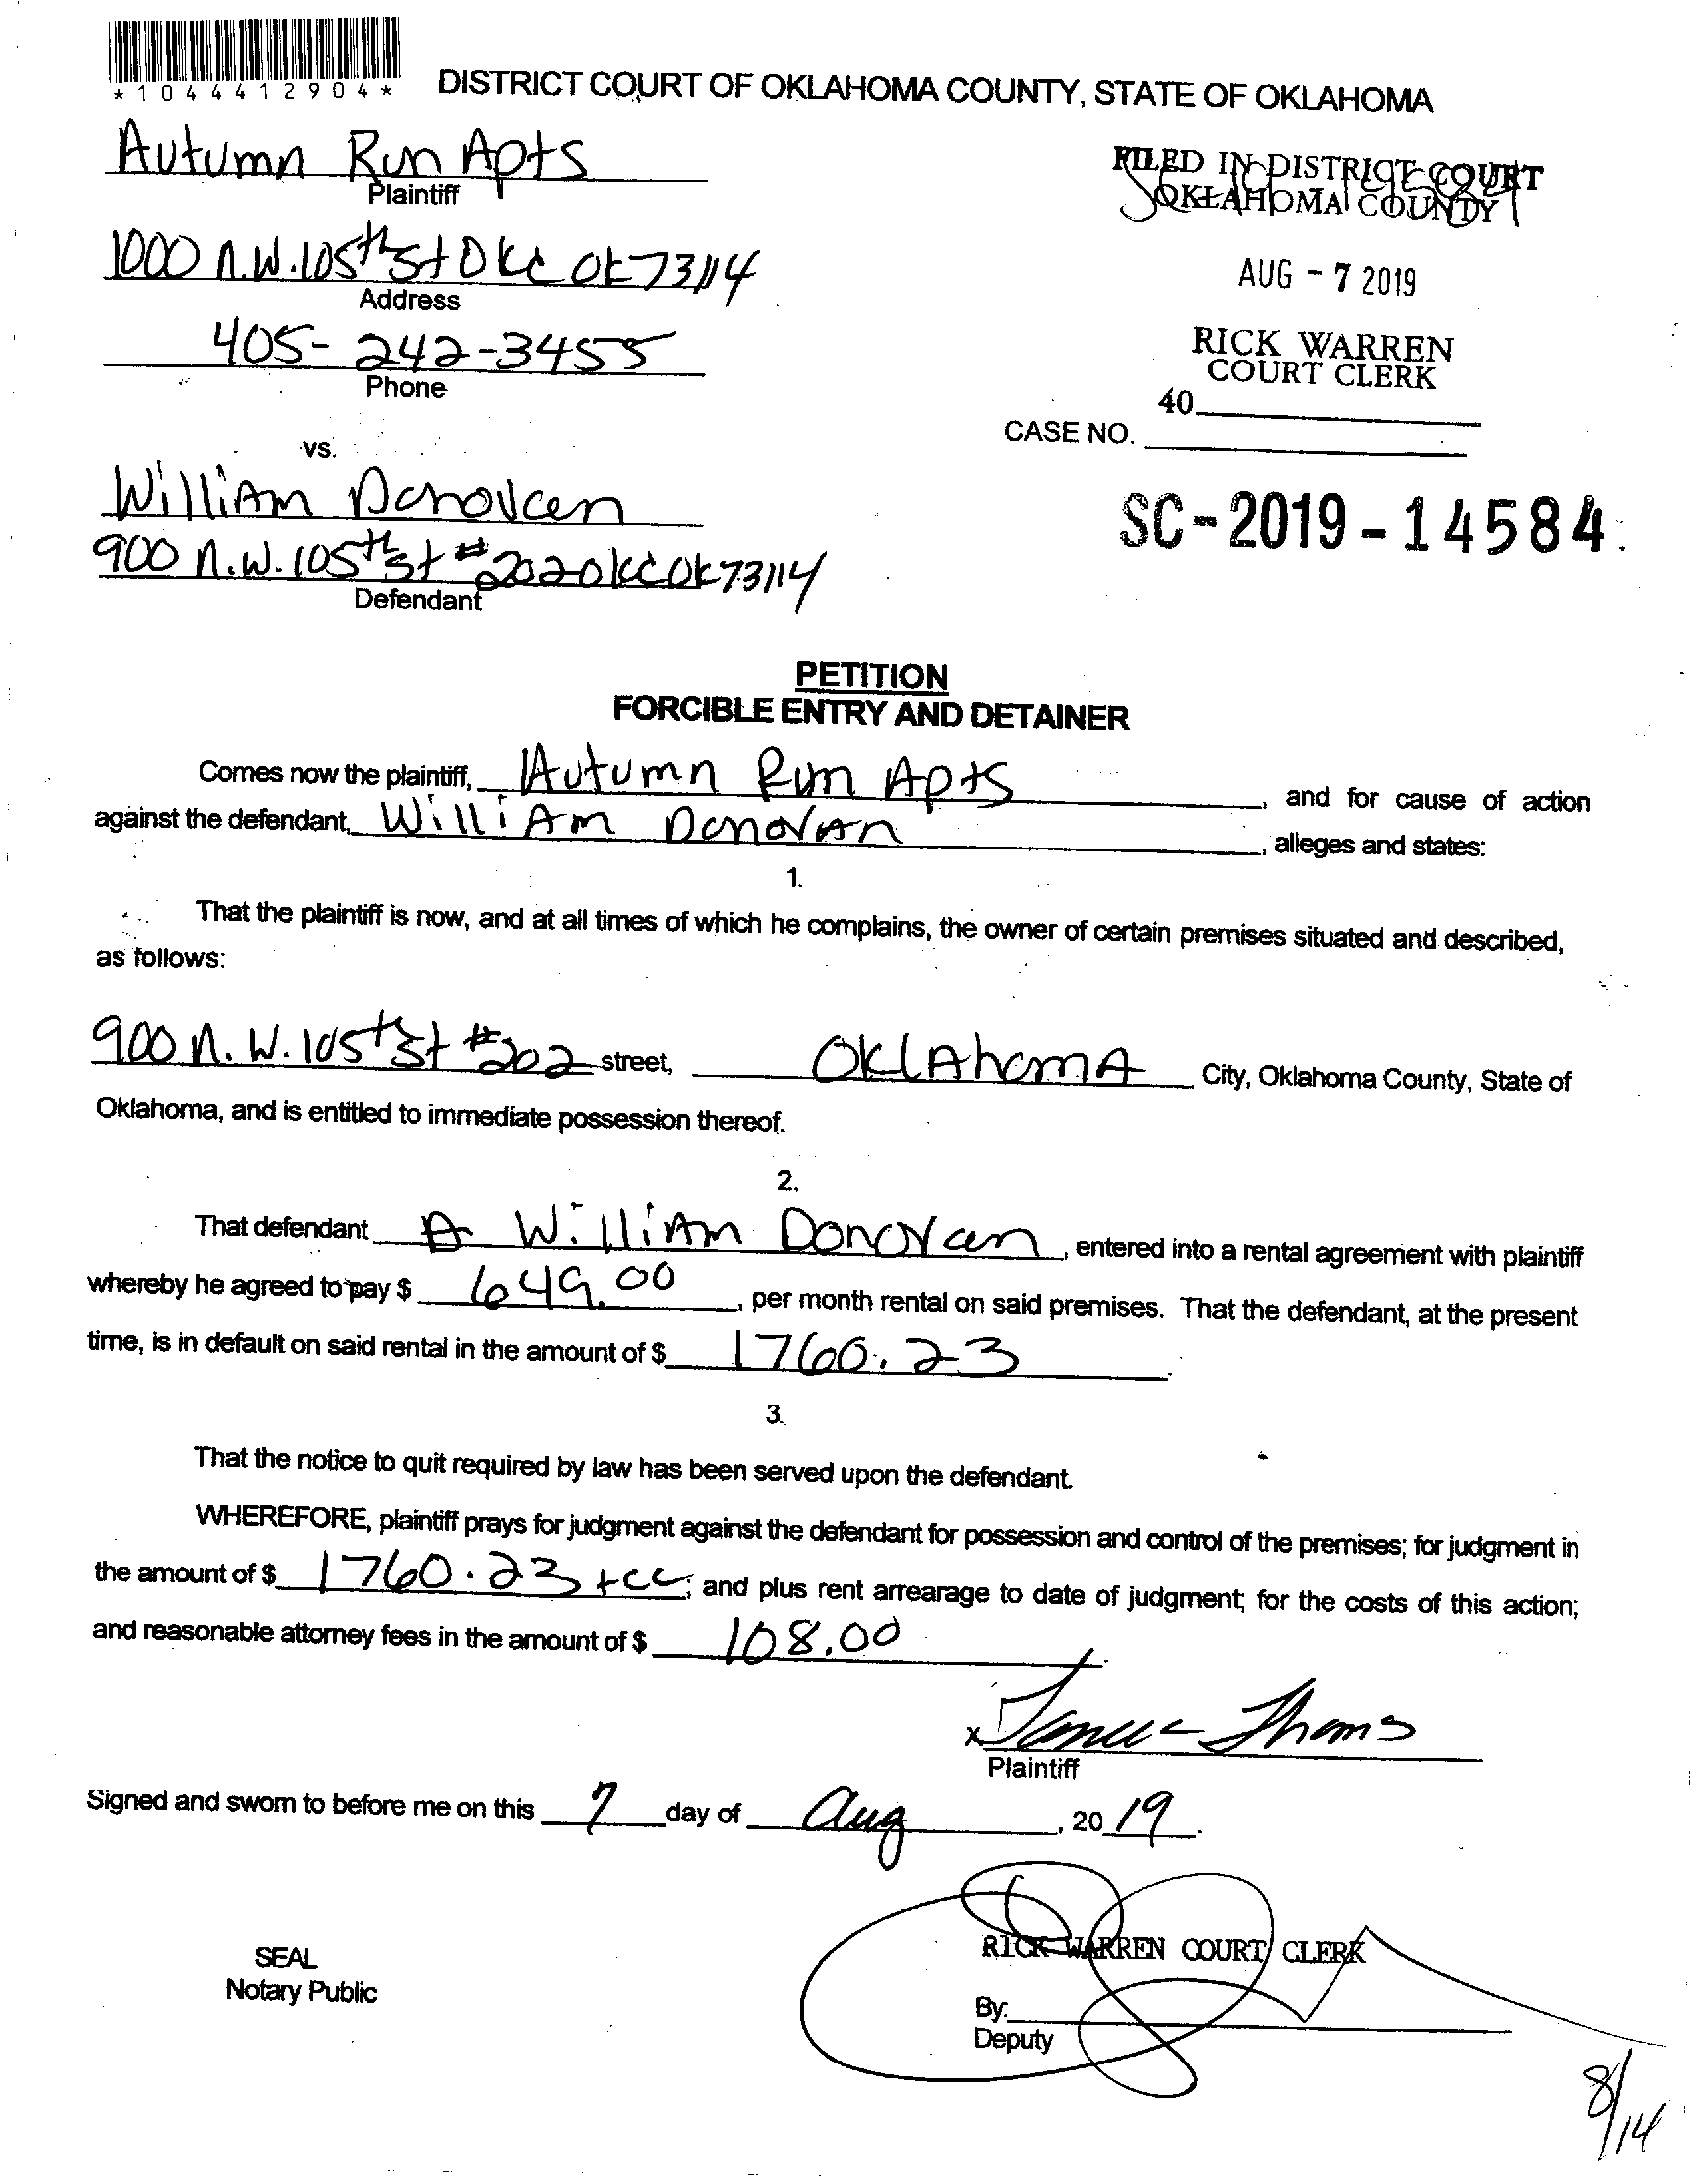 *1044412904*
DISTRICT COURT OF OKLAHOMA COUNTY, STATE OF OKLAHOMA
Autumn Run Apts
Plaintiff
FILED IN DISTRICT COURT
OKLAHOMA COUNTY
1000 N.W. 105th St OKC OK 73114
Address
AUG - 7 2019
405-242-3455
Phone
RICK WARREN
COURT CLERK
40
CASE NO.
vs.
William Donovan
SC-2019-14584
900 N.W. 105th St #202 OKC OK 73114
Defendant
PETITION
FORCIBLE ENTRY AND DETAINER
Comes now the plaintiff, Autumn Run Apts, and for cause of action
against the defendant, William Donovan, alleges and states:
1.
That the plaintiff is now, and at all times of which he complains, the owner of certain premises situated and described,
as follows:
900 N.W. 105th St #202 street, Oklahoma City, Oklahoma County, State of
Oklahoma, and is entitled to immediate possession thereof.
2.
That defendant William Donovan, entered into a rental agreement with plaintiff
whereby he agreed to pay $ 649.00, per month rental on said premises. That the defendant, at the present
time, is in default on said rental in the amount of $ 1760.23.
3.
That the notice to quit required by law has been served upon the defendant.
WHEREFORE, plaintiff prays for judgment against the defendant for possession and control of the premises; for judgment in
the amount of $ 1760.23 +CC; and plus rent arrearage to date of judgment; for the costs of this action;
and reasonable attorney fees in the amount of $ 108.00
x
Plaintiff
Signed and sworn to before me on this 7 day of Aug, 2019.
SEAL
Notary Public
RICK WARREN COURT CLERK
By:
Deputy
8/14